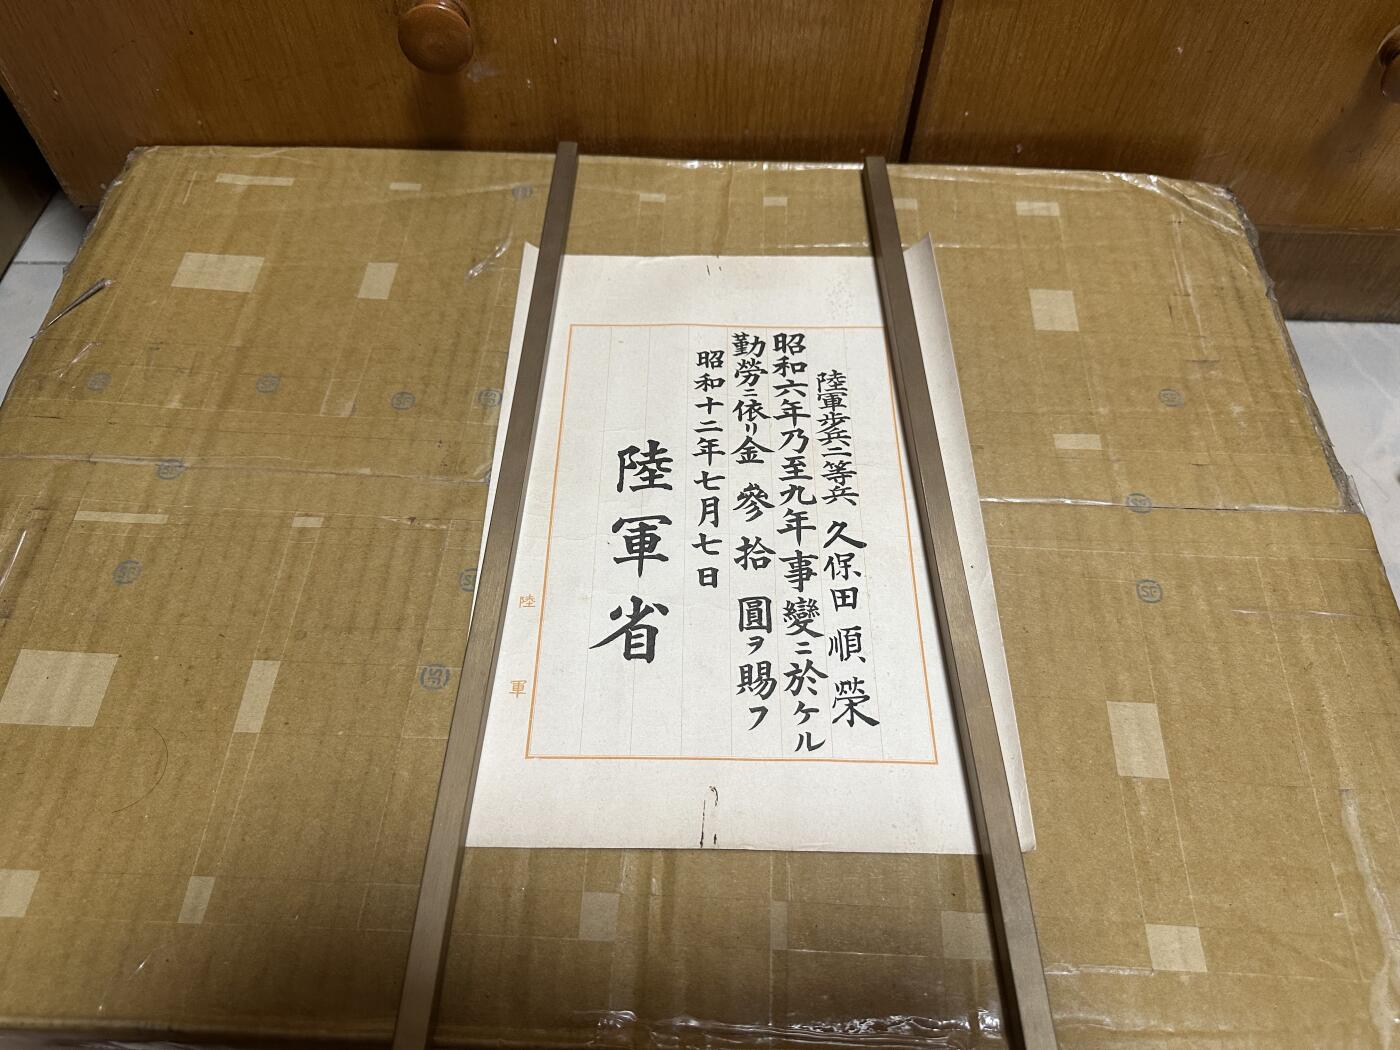 陸軍歩兵二等兵 久保田順榮
昭和六年乃至九年事變ニ於ケル
勤勞ニ依リ金參拾圓ヲ賜フ
昭和十二年七月七日
陸軍省
陸軍